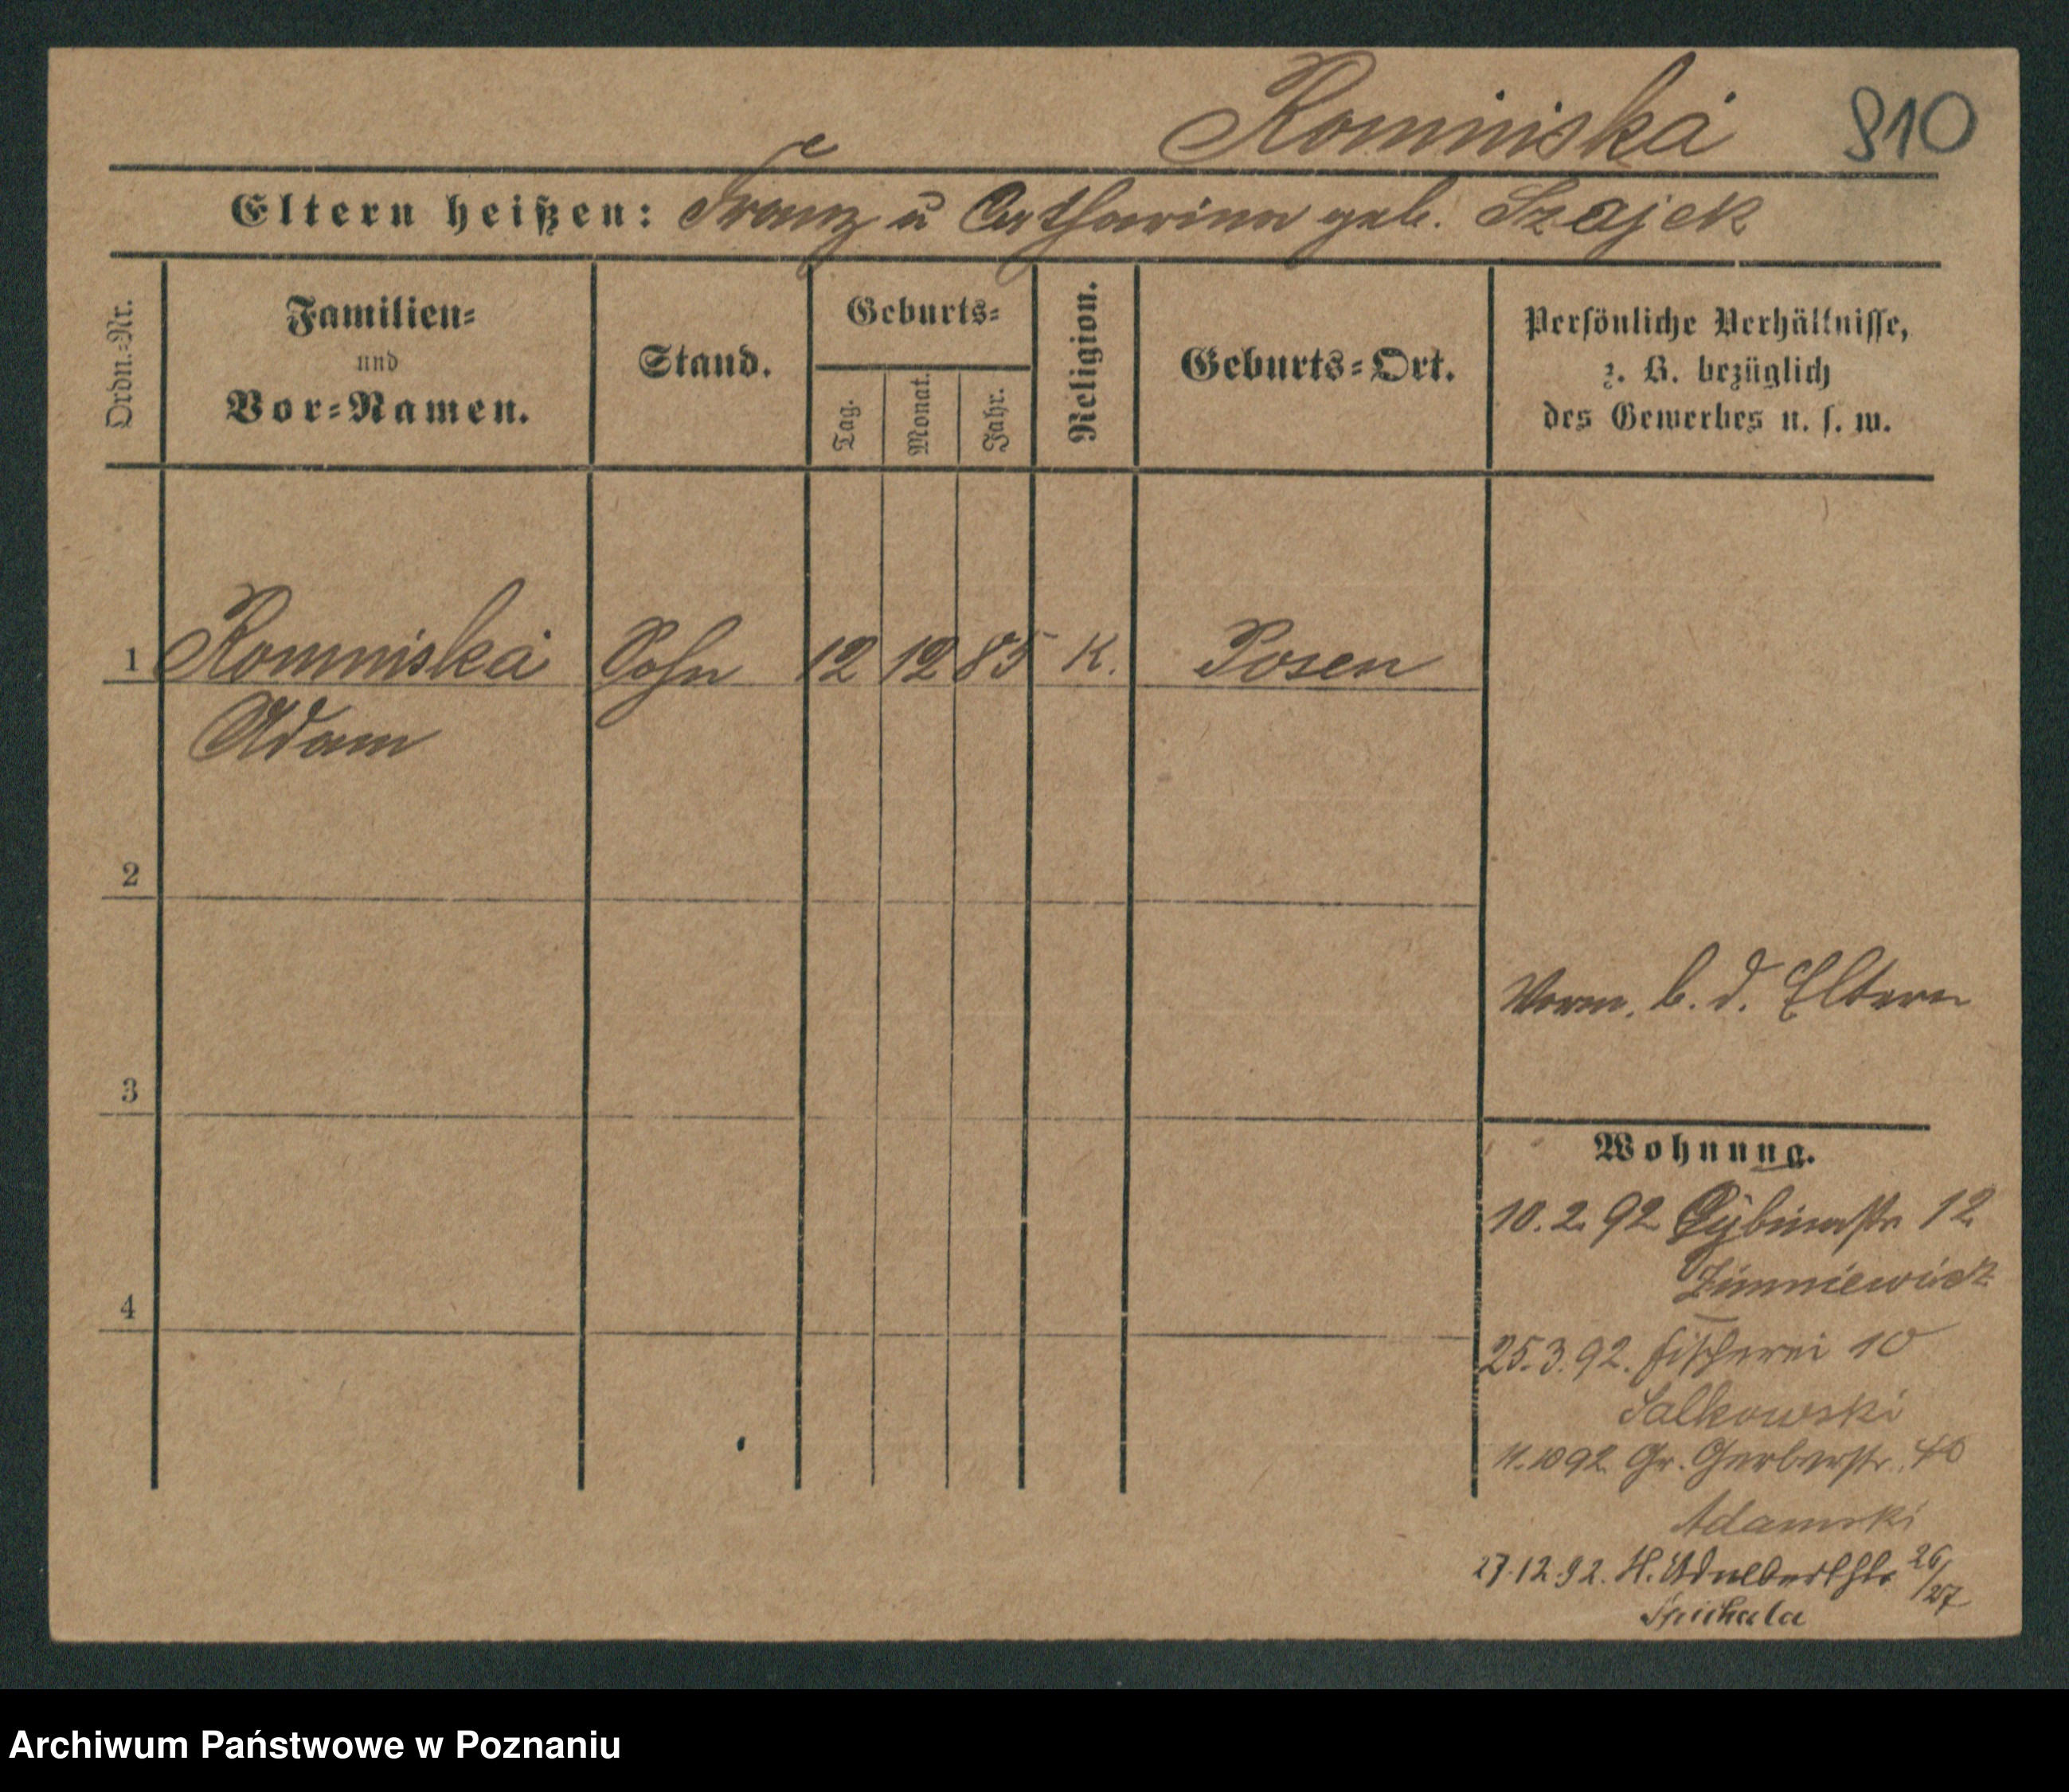 Romniski 910
Eltern heißen: Franz u Catharina geb. Szajek
Ordn.-Nr.
Familien-
und
Vor-Namen.
Stand.
Geburts-
Tag.
Monat.
Jahr.
Religion.
Geburts-Ort.
Persönliche Verhältnisse,
z. B. bezüglich
des Gewerbes u. s. w.
1 Romniski Sohn 12 12 85 K. Posen
Adam
2
Vorm. b. d. Eltern
3
Wohnung.
10.2.92 Cybinastr 12
Zimniewicz
4
25.3.92. Fischerei 10
Salkowski
11.10 92 Gr. Gerberstr. 40
Adamski
27.12.92. St. Adalbertstr 26/27
Spichala
Archiwum Państwowe w Poznaniu